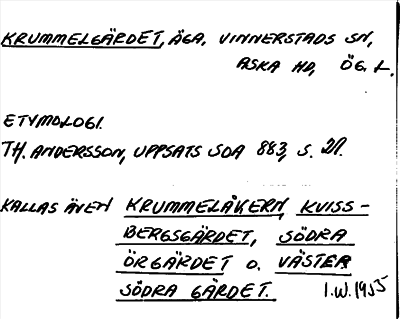 KRUMMELGÄRDET, ÄGA. VINNERSTADS SN,
ASKA HD, ÖG. L.
ETYMOLOGI.
TH. ANDERSSON, UPPSATS SOA 883, S. 21.
KALLAS ÄVEN KRUMMELÅKERN, KVISS-
BERGSGÄRDET, SÖDRA
ÖRGÄRDET O. VÄSTER
SÖDRA GÄRDET. I.W. 1955